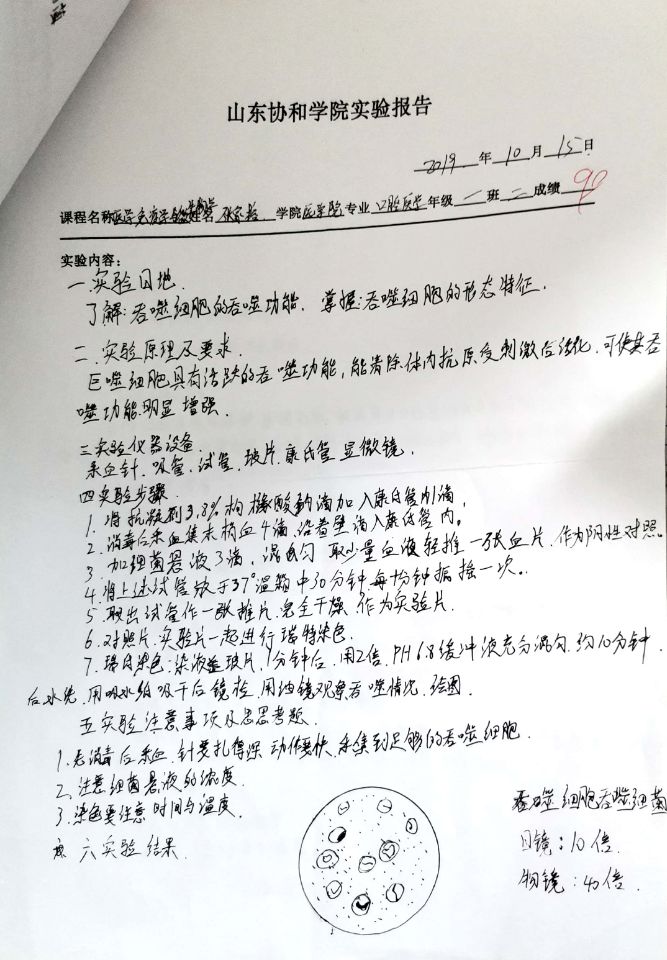 山东协和学院实验报告
2019 年 10 月 15 日
课程名称 医学免疫学 姓名 学院 医学院 专业 口腔医学 年级 一 班 二 成绩 90
实验内容：
一.实验目地.
了解:吞噬细胞的吞噬功能. 掌握:吞噬细胞的形态特征.
二.实验原理及要求.
巨噬细胞具有活跃的吞噬功能,能清除体内抗原受刺激后活化.可使其吞
噬功能明显增强.
三实验仪器设备.
采血针.吸管.试管.玻片.康氏管 显微镜.
四实验步骤
1. 将抗凝剂3.8%枸橼酸钠滴加入康氏管内1滴,
2. 消毒后采血集末梢血4滴,沿着壁滴入康氏管内。
3. 加细菌悬液3滴,混匀 取少量血液轻推一张血片.作为阴性对照。
4. 将上述试管放于37°温箱中30分钟,每10分钟振摇一次。
5 取出试管作一张推片.完全干燥.作为实验片.
6. 对照片.实验片一起进行瑞特染色.
7. 瑞氏染色:染液 玻片,1分钟后.用2倍.PH6.8缓冲液充分混匀.约10分钟.
后水洗.用吸水纸吸干后镜检.用油镜观察吞噬情况.绘图.
五实验注意事项及思考题.
1. 消毒后采血 针要扎得深 动作要快.采集到足够的吞噬细胞.
2.注意细菌悬液的浓度.
3.染色要注意时间与温度.
六实验结果.
吞噬细胞吞噬细菌
目镜:10倍.
物镜:40倍.